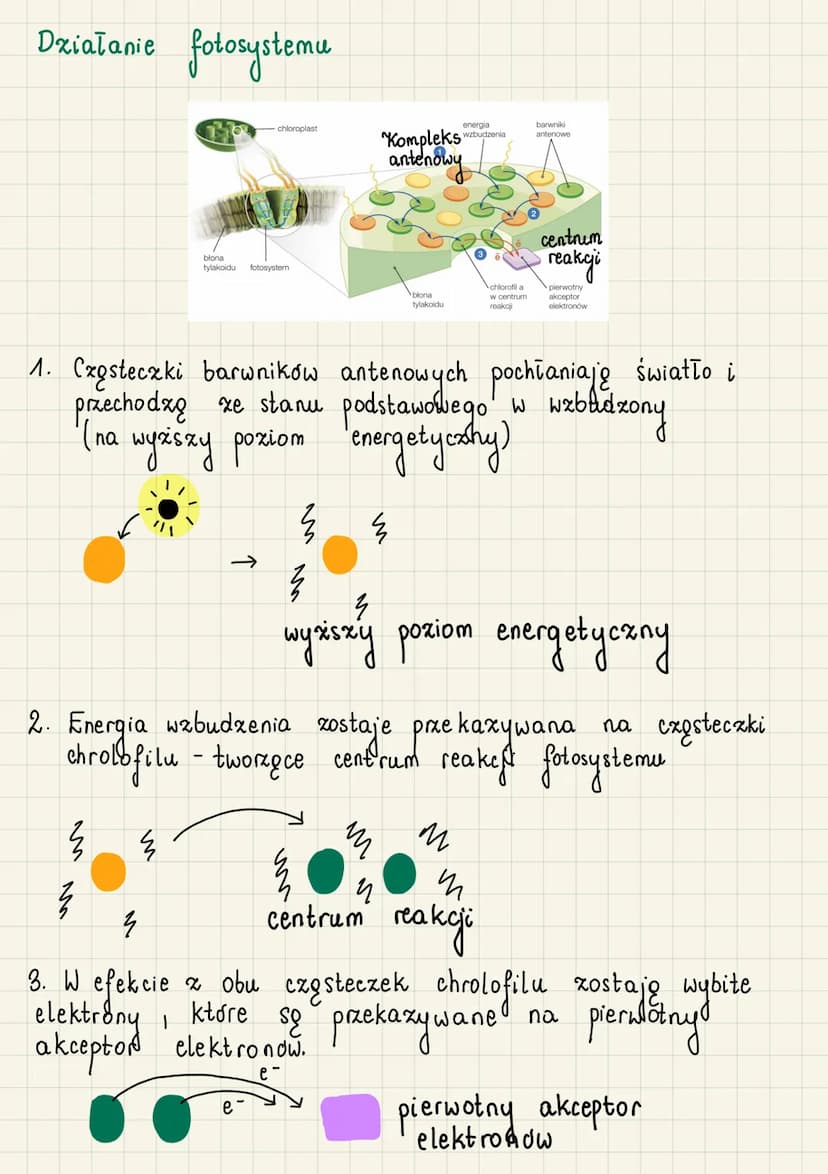 Działanie fotosystemu
chloroplast
Kompleks
antenowy
energia
wzbudzenia
barwniki
antenowe
1
2
centrum
reakcji
3
ē
ē
błona
tylakoidu
fotosystem
błona
tylakoidu
chlorofil a
w centrum
reakcji
pierwotny
akceptor
elektronów
1. Cząsteczki barwników antenowych pochłaniają światło i
przechodzą ze stanu podstawowego w wzbudzony
(na wyższy poziom energetyczny)
→
wyższy poziom energetyczny
2. Energia wzbudzenia zostaje przekazywana na cząsteczki
chrolofilu - tworzące centrum reakcji fotosystemu
centrum reakcji
3. W efekcie z obu cząsteczek chrolofilu zostają wybite
elektrony, które są przekazywane na pierwotny
akceptor elektronów.
e-
e-
pierwotny akceptor
elektronów